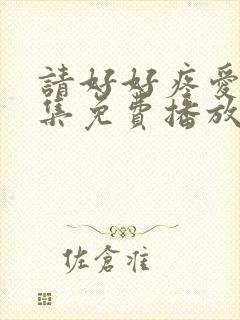 請好好疼愛
集免費播放
佐倉准